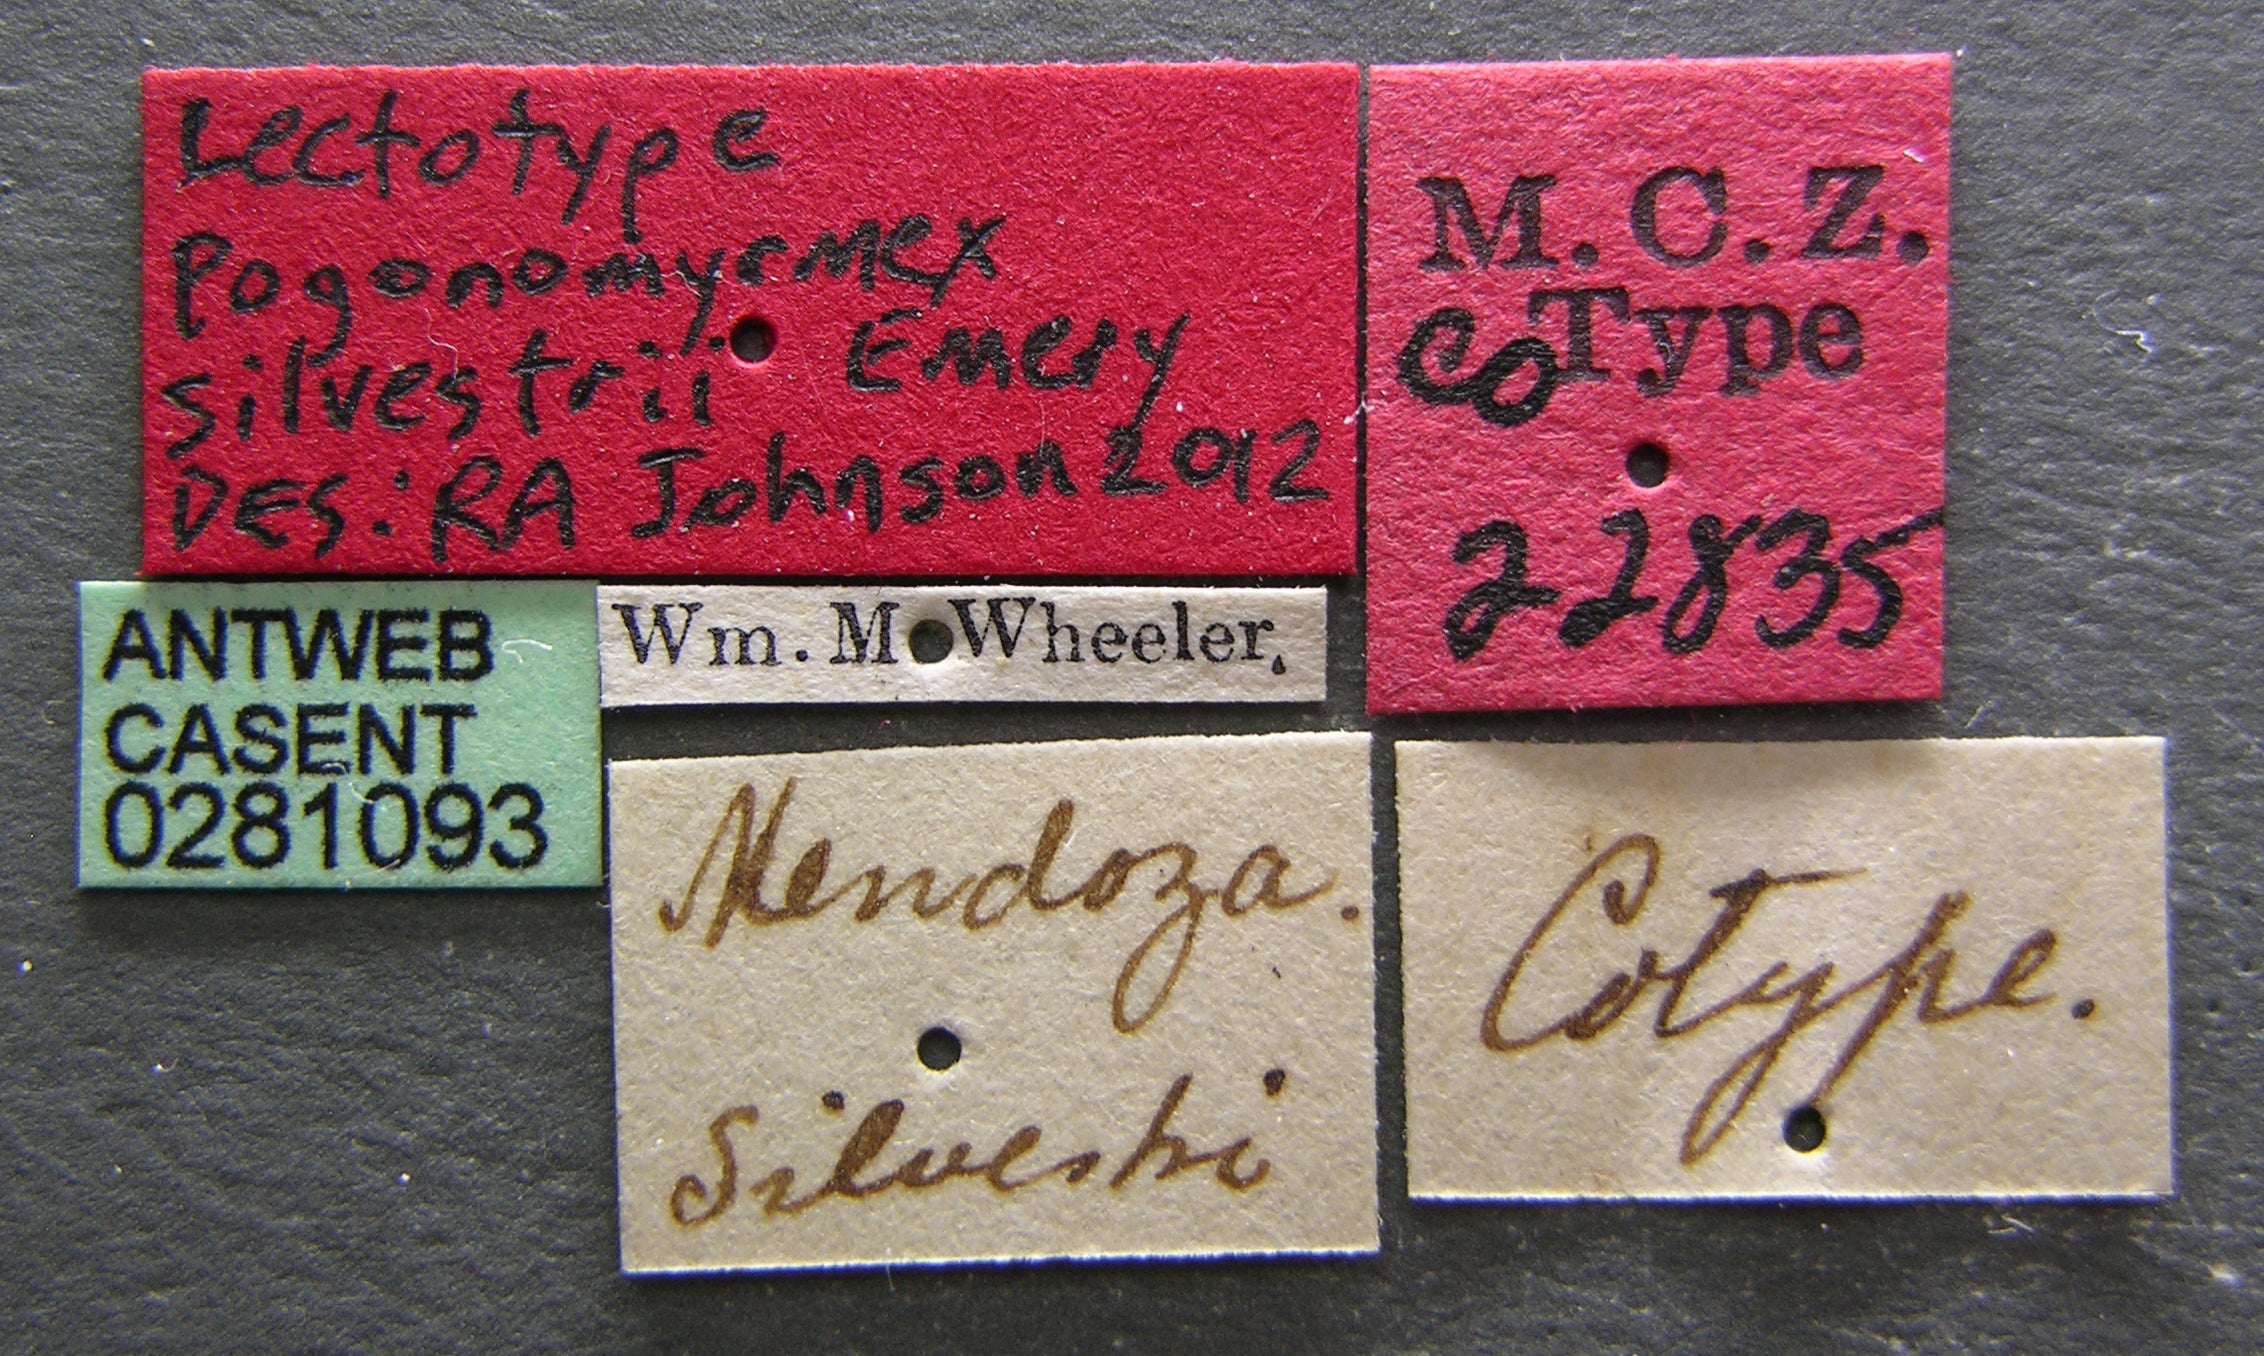 Lectotype
Pogonomyrmex
silvestrii Emery
DES: RA Johnson 2012
M. C. Z.
CoType
22835
ANTWEB
CASENT
0281093
Wm. M Wheeler.
Mendoza.
Silvestri
Cotype.